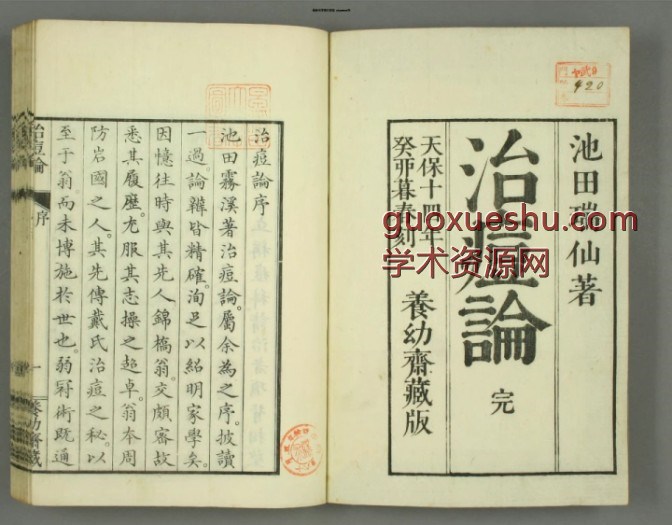 池田瑞仙著
治痘論
完
天保十四年
癸卯暮春刻
養幼齋藏版
420
guoxueshu.com
学术资源网
治痘論序
池田霧溪著治痘論。屬余為之序。披讀
一過論辯皆精確。洵足以紹明家學矣。
因憶往時與其先人錦橋翁。交頗審故
悉其履歷。尤服其志操之超卓。翁本周
防岩國之人。其先傳戴氏治痘之秘。以
至于翁。而未博施於世也。弱冠術既通
治痘論
序
一
養幼齋藏